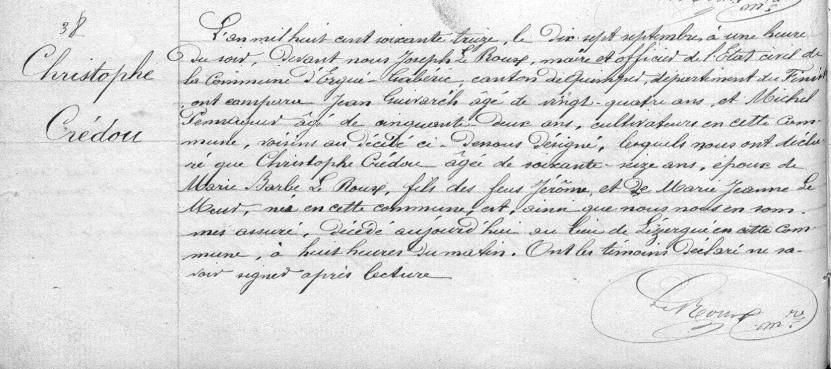 38
Christophe
Crédou
L'an mil huit cent soixante treize, le dix sept septembre, à une heure
du soir, devant nous Joseph Le Roux, maire et officier de l'Etat civil de
la commune d'Ergué Gabéric, canton de Quimper, département du Finist
ont comparu Jean Guivarch âgé de vingt-quatre ans, et Michel
âgé de cinquante deux ans, cultivateurs en cette com-
mune, voisins au décédé ci-dessous désigné, lesquels nous ont décla-
ré que Christophe Crédou âgée de soixante-seize ans, époux de
Marie Barbe Le Roux, fils des feus Jérôme, et de Marie Jeanne Le
Meur, né en cette commune, est, ainsi que nous nous en som-
mes assuré, décédé aujourd'hui au lieu de Lézergué en cette com-
mune, à huit heures du matin. Ont les témoins déclaré ne sa-
voir signer après lecture
Le Roux mre